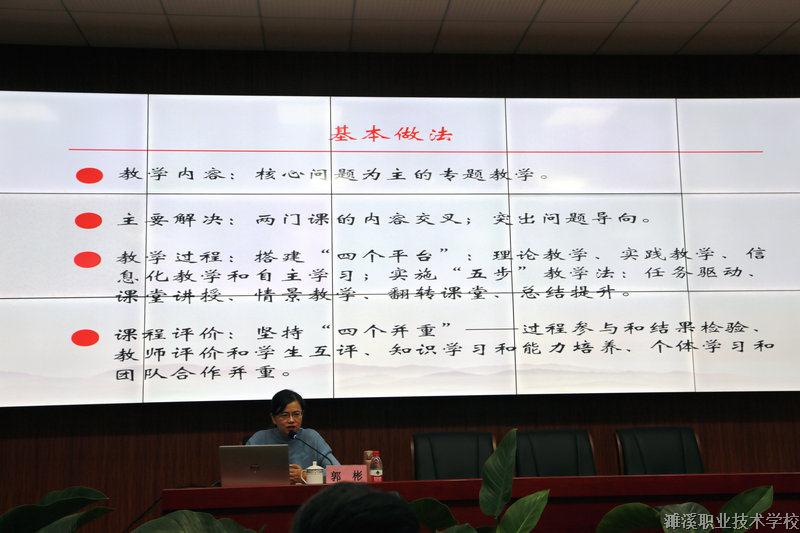 基本做法
教学内容：核心问题为主的专题教学。
主要解决：两门课的内容交叉；突出问题导向。
教学过程：搭建“四个平台”：理论教学、实践教学、信
息化教学和自主学习；实施“五步”教学法：任务驱动、
课堂讲授、情景教学、翻转课堂、总结提升。
课程评价：坚持“四个并重”——过程参与和结果检验、
教师评价和学生互评、知识学习和能力培养、个体学习和
团队合作并重。
郭 彬
濉溪职业技术学校